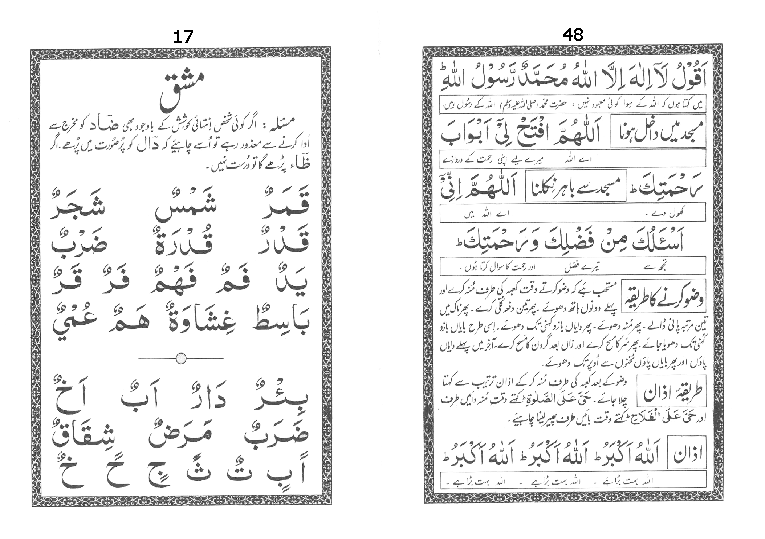 17
مشق
مسئلہ : اگر کوئی شخص انتہائی کوشش کے باوجود بھی ضاد کو مخرج سے
ادا کرنے سے معذور رہے تو اُسے چاہیئے کہ دال کو پُر صورت میں پڑھے، اگر
ظاء پڑھے گا تو درست نہیں۔
قَمَرٌ شَمْسٌ شَجَرٌ
قَدْرٌ قُدْرَةٌ ضَرْبٌ
يَدٌ فَمٌ فَهْمٌ فَرٌ قَرٌ
بَاسِطٌ غِشَاوَةٌ هَمٌ عُمْيٌ
بِئْرٌ دَارٌ اَبٌ اَخٌ
ضَرَبٌ مَرَضٌ شِقَاقٌ
اً بٍ تٌ ثً جٍ حً خٌ
48
اَقُوْلُ لَآ اِلٰهَ اِلَّا اللّٰهُ مُحَمَّدٌ رَّسُوْلُ اللّٰهِ ط
میں کہتا ہوں کہ اللہ کے سوا کوئی معبود نہیں ، حضرت محمد (صلی اللہ علیہ وسلم) اللہ کے رسول ہیں
مسجد میں داخل ہونا اَللّٰهُمَّ افْتَحْ لِيْٓ اَبْوَابَ
اے اللہ میرے لیے اپنی رحمت کے دروازے
رَحْمَتِكَ ط مسجد سے باہر نکلنا اَللّٰهُمَّ اِنِّيْٓ
کھول دے ۔ اے اللہ میں
اَسْئَلُكَ مِنْ فَضْلِكَ وَرَحْمَتِكَ ط
تجھ سے تیرے فضل اور رحمت کا سوال کرتا ہوں ۔
وضو کرنے کا طریقہ مستحب ہے کہ وضو کرتے وقت کعبہ کی طرف مُنہ کرے اور
پہلے دونوں ہاتھ دھوئے ۔ پھر تین دفعہ کُلی کرے ۔ پھر ناک میں
تین مرتبہ پانی ڈالے ۔ پھر مُنہ دھوئے ۔ پھر دایاں بازو کہنی تک دھوئے ۔ اِسی طرح بایاں بازو
کہنی تک دھویا جائے ۔ پھر سَر کا مسح کرے اور زاں بعد گردن کا مسح کرے ۔ آخر میں پہلے دایاں
پاؤں اور پھر بایاں پاؤں ٹخنوں سے اُوپر تک دھوئے ۔
طریقۂ اذان وضو کے بعد کعبہ کی طرف مُنہ کر کے اذان ترتیب سے کہتا
چلا جائے ۔ حَیَّ عَلَی الصَّلٰوة ط کہتے وقت مُنہ دائیں طرف
اور حَیَّ عَلَی الْفَلَاح ط کہتے وقت بائیں طرف پھیر لینا چاہیئے ۔
اذان اَللّٰهُ اَكْبَرُ ط اَللّٰهُ اَكْبَرُ ط اَللّٰهُ اَكْبَرُ ط
اللہ بہت بڑا ہے ۔ اللہ بہت بڑا ہے ۔ اللہ بہت بڑا ہے ۔